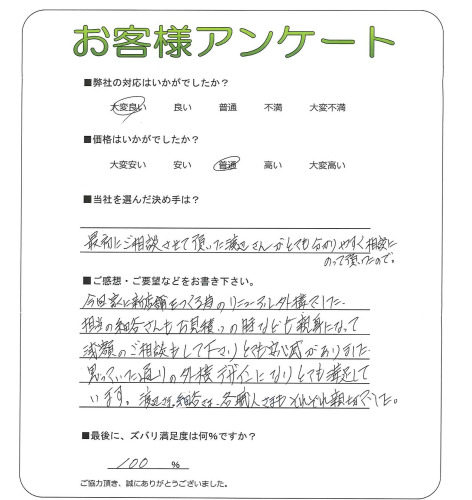 お客様アンケート
■弊社の対応はいかがでしたか？
大変良い 良い 普通 不満 大変不満
■価格はいかがでしたか？
大変安い 安い 普通 高い 大変高い
■当社を選んだ決め手は？
最初にご相談させて頂いた渡辺さんがとても分かりやすく相談に
のって頂いたので。
■ご感想・ご要望などをお書き下さい。
今回家に新店舗をつくる為のリニューアル外構でした。
担当の細谷さんもお見積りの時なども親身になって
減額のご相談もして下さりとても安心感がありました
思っていた通りの外構デザインになりとても満足して
います。渡辺さま、細谷さま、各職人さまもそれぞれ親切でした。
■最後に、ズバリ満足度は何%ですか？
100 %
ご協力頂き、誠にありがとうございました。